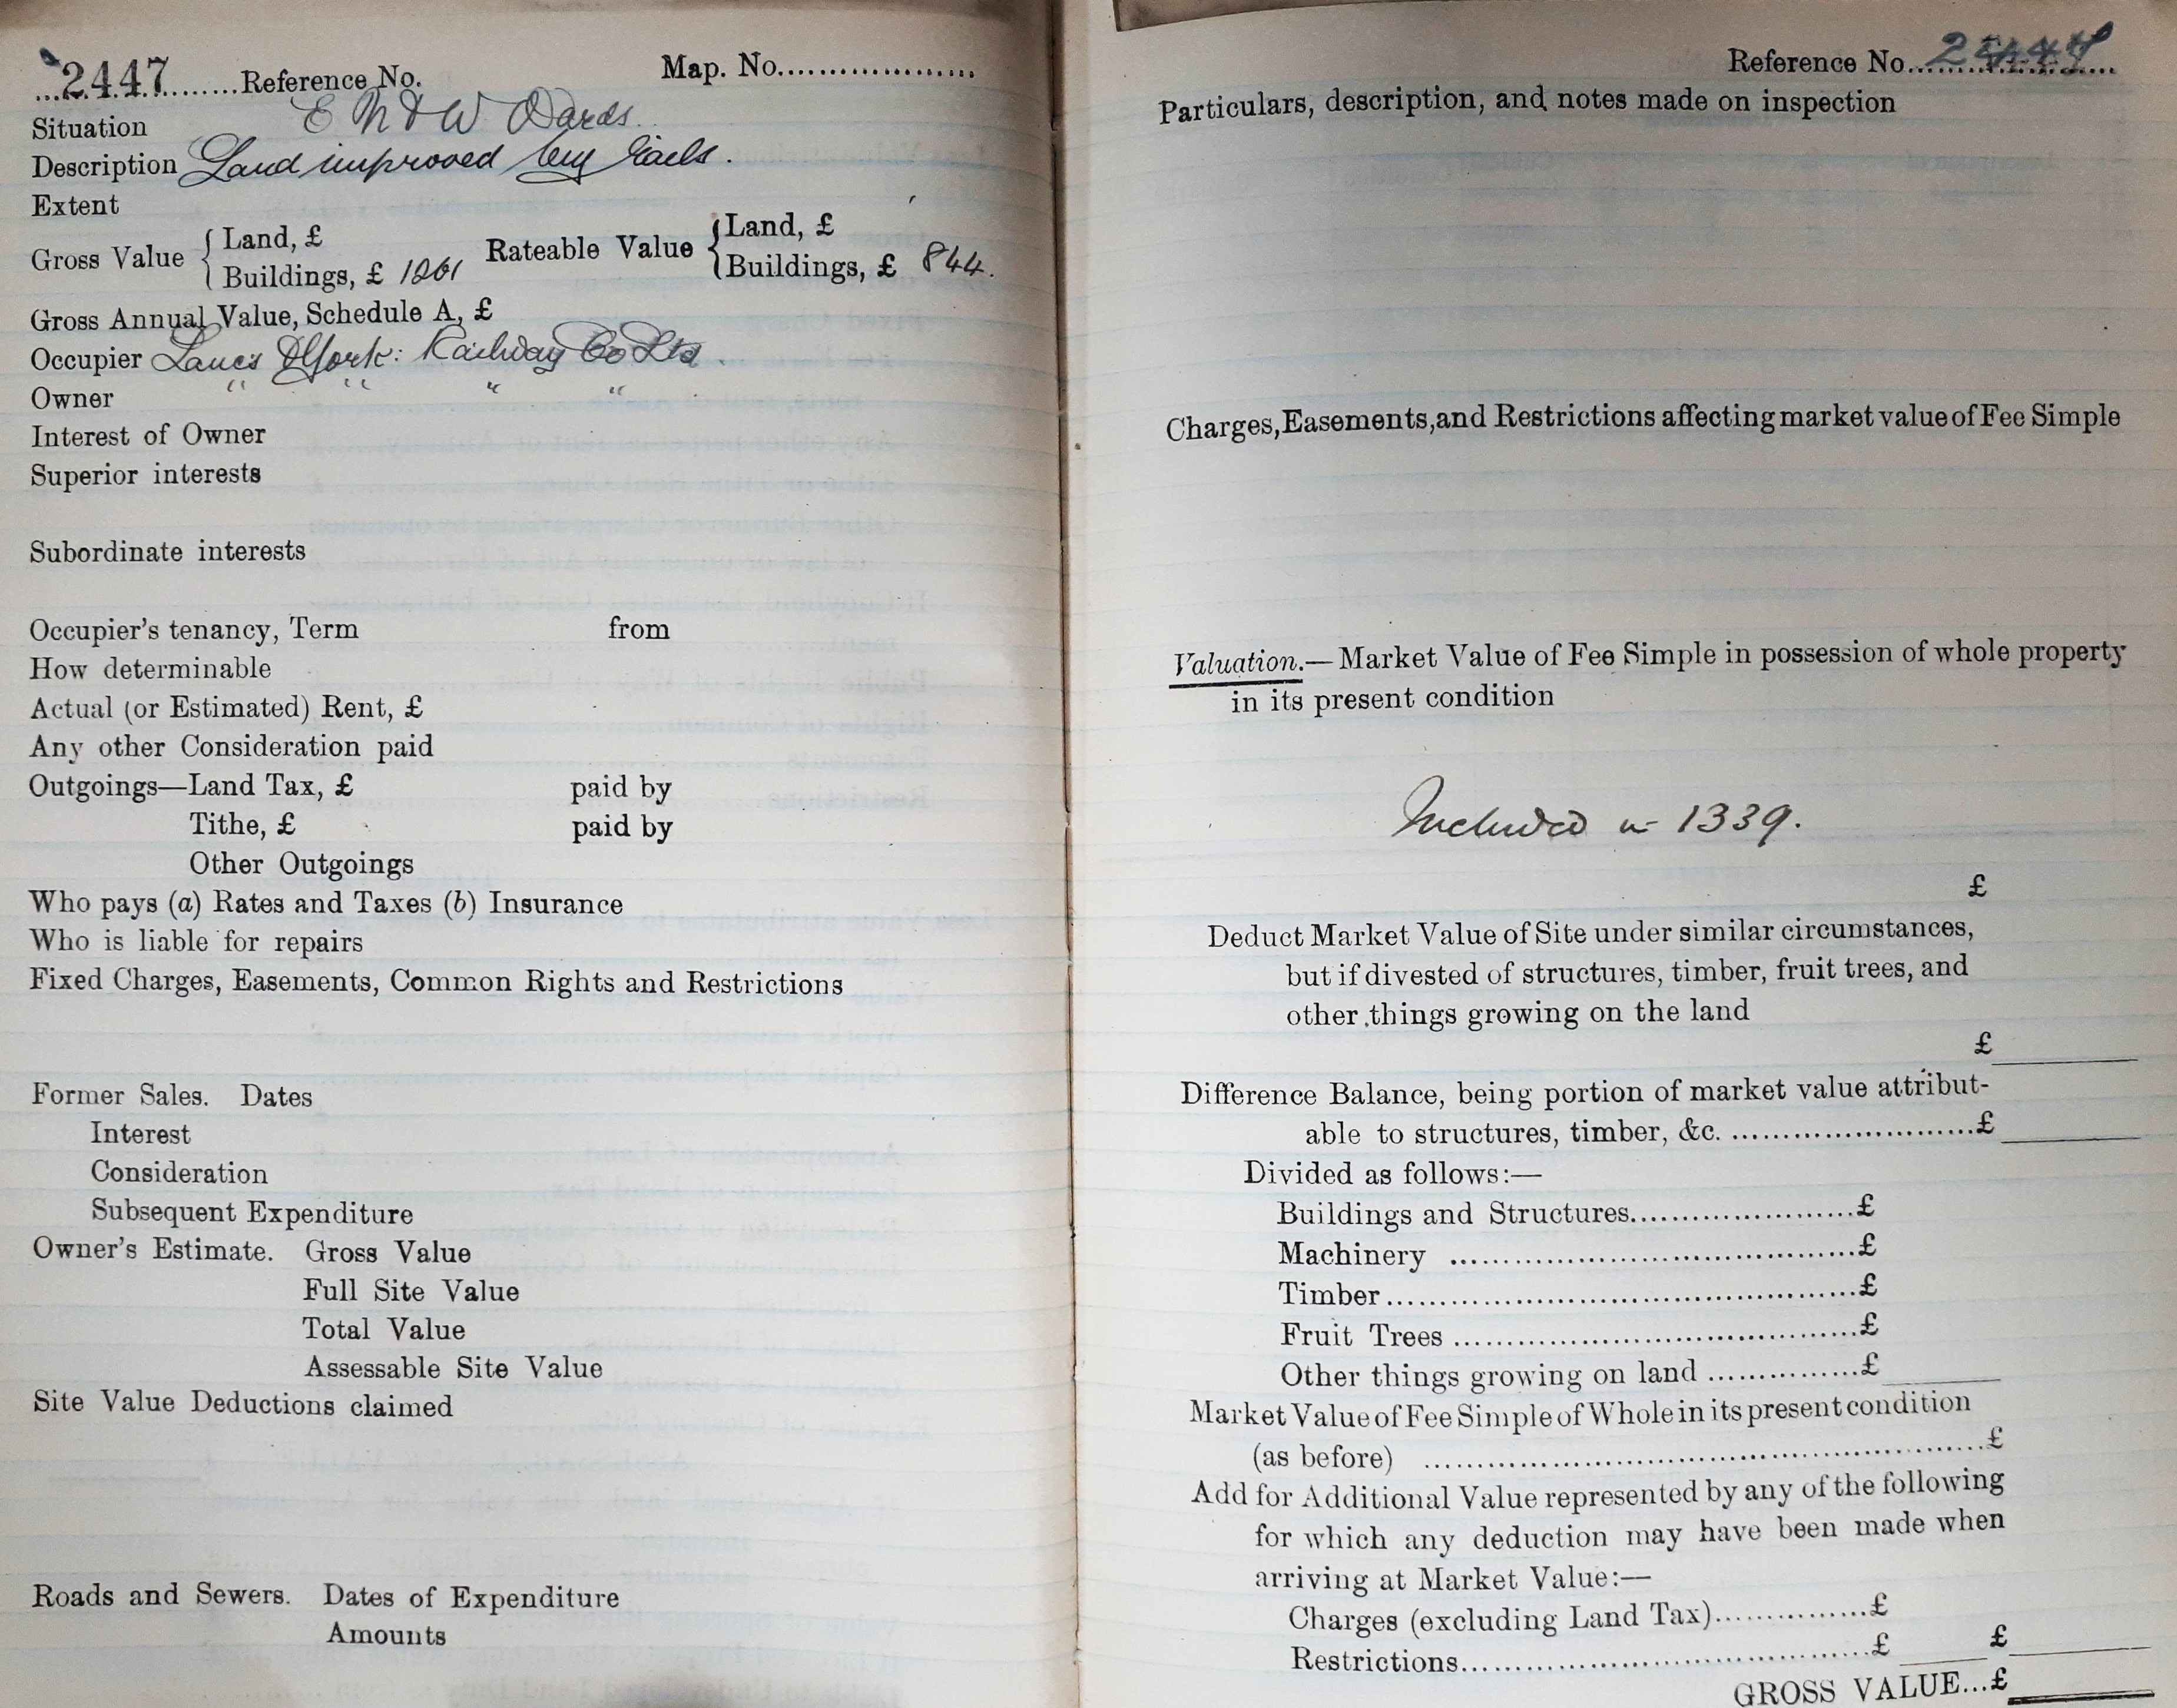 ...2447.........Reference No. Map. No.....................
Situation E N & W Wards.
Description Land improved by Rails.
Extent
Gross Value { Land, £ Rateable Value { Land, £
Buildings, £ 1261 Buildings, £ 844.
Gross Annual Value, Schedule A, £
Occupier Lancs & York: Railway Co Ltd.
Owner " " " "
Interest of Owner
Superior interests
Subordinate interests
Occupier's tenancy, Term from
How determinable
Actual (or Estimated) Rent, £
Any other Consideration paid
Outgoings—Land Tax, £ paid by
Tithe, £ paid by
Other Outgoings
Who pays (a) Rates and Taxes (b) Insurance
Who is liable for repairs
Fixed Charges, Easements, Common Rights and Restrictions
Former Sales. Dates
Interest
Consideration
Subsequent Expenditure
Owner's Estimate. Gross Value
Full Site Value
Total Value
Assessable Site Value
Site Value Deductions claimed
Roads and Sewers. Dates of Expenditure
Amounts
Reference No. 2447
Particulars, description, and notes made on inspection
Charges, Easements, and Restrictions affecting market value of Fee Simple
Valuation.—Market Value of Fee Simple in possession of whole property
in its present condition
Included in 1339.
£
Deduct Market Value of Site under similar circumstances,
but if divested of structures, timber, fruit trees, and
other things growing on the land
£
Difference Balance, being portion of market value attribut-
able to structures, timber, &c. ........................£
Divided as follows:—
Buildings and Structures.......................£
Machinery .........................................£
Timber...............................................£
Fruit Trees ........................................£
Other things growing on land ...............£
Market Value of Fee Simple of Whole in its present condition
(as before) .........................................................£
Add for Additional Value represented by any of the following
for which any deduction may have been made when
arriving at Market Value:—
Charges (excluding Land Tax)...............£
Restrictions..........................................£ £
GROSS VALUE...£